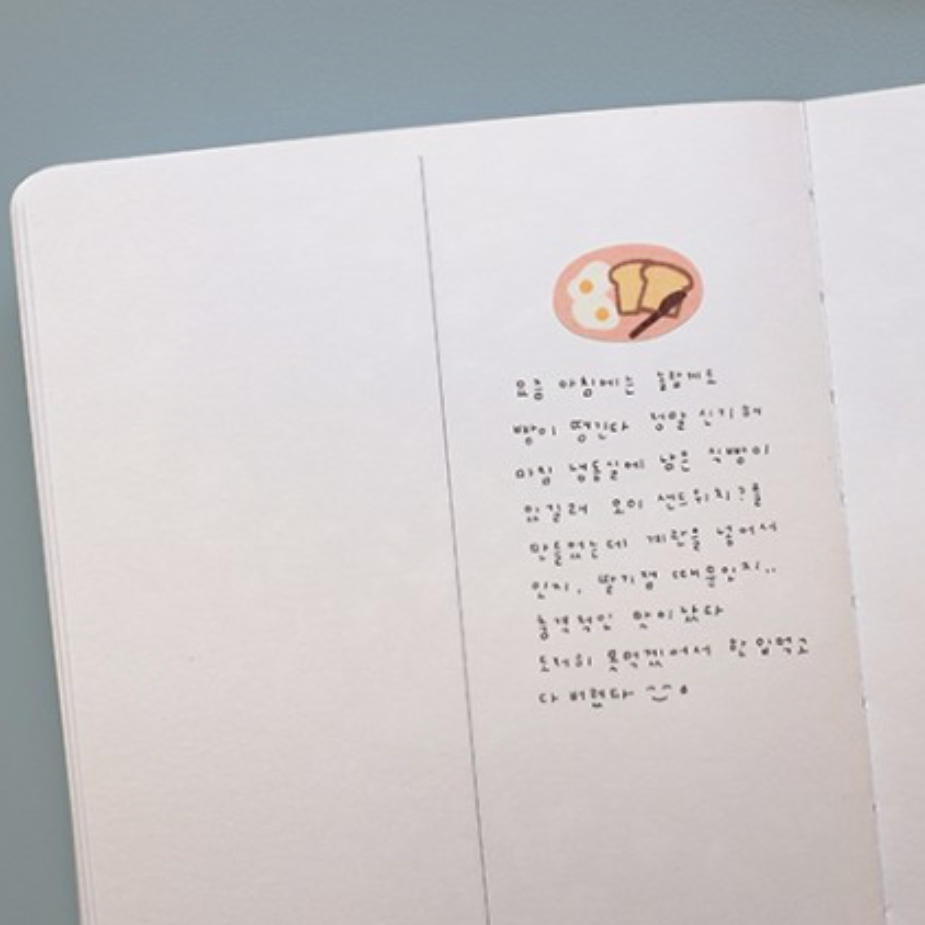 요즘 아침에는 놀랍게도
빵이 땡긴다 정말 신기해
마침 냉동실에 남은 식빵이
있길래 오이 샌드위치?를
만들었는데 계란을 넣어서
인지, 딸기잼 때문인지..
충격적인 맛이 났다
도저히 못먹겠어서 한 입먹고
다 버렸다